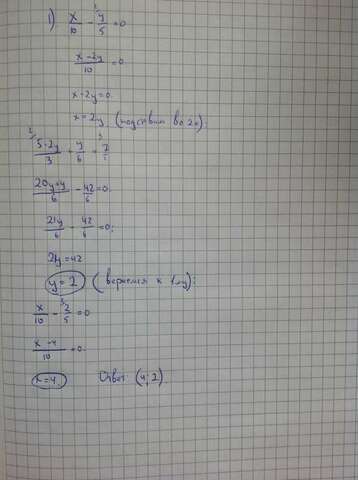 1) x/10 - y/5 = 0
x-2y/10 = 0
x-2y=0
x=2y (подставим во 2е):
5·2y/3 + y/6 = 7
20y+y/6 - 42/6 = 0
21y/6 - 42/6 = 0;
21y=42
y=2 (вернемся к 1му):
x/10 - 2/5 = 0
x-4/10 = 0
x=4. Ответ (4;2).